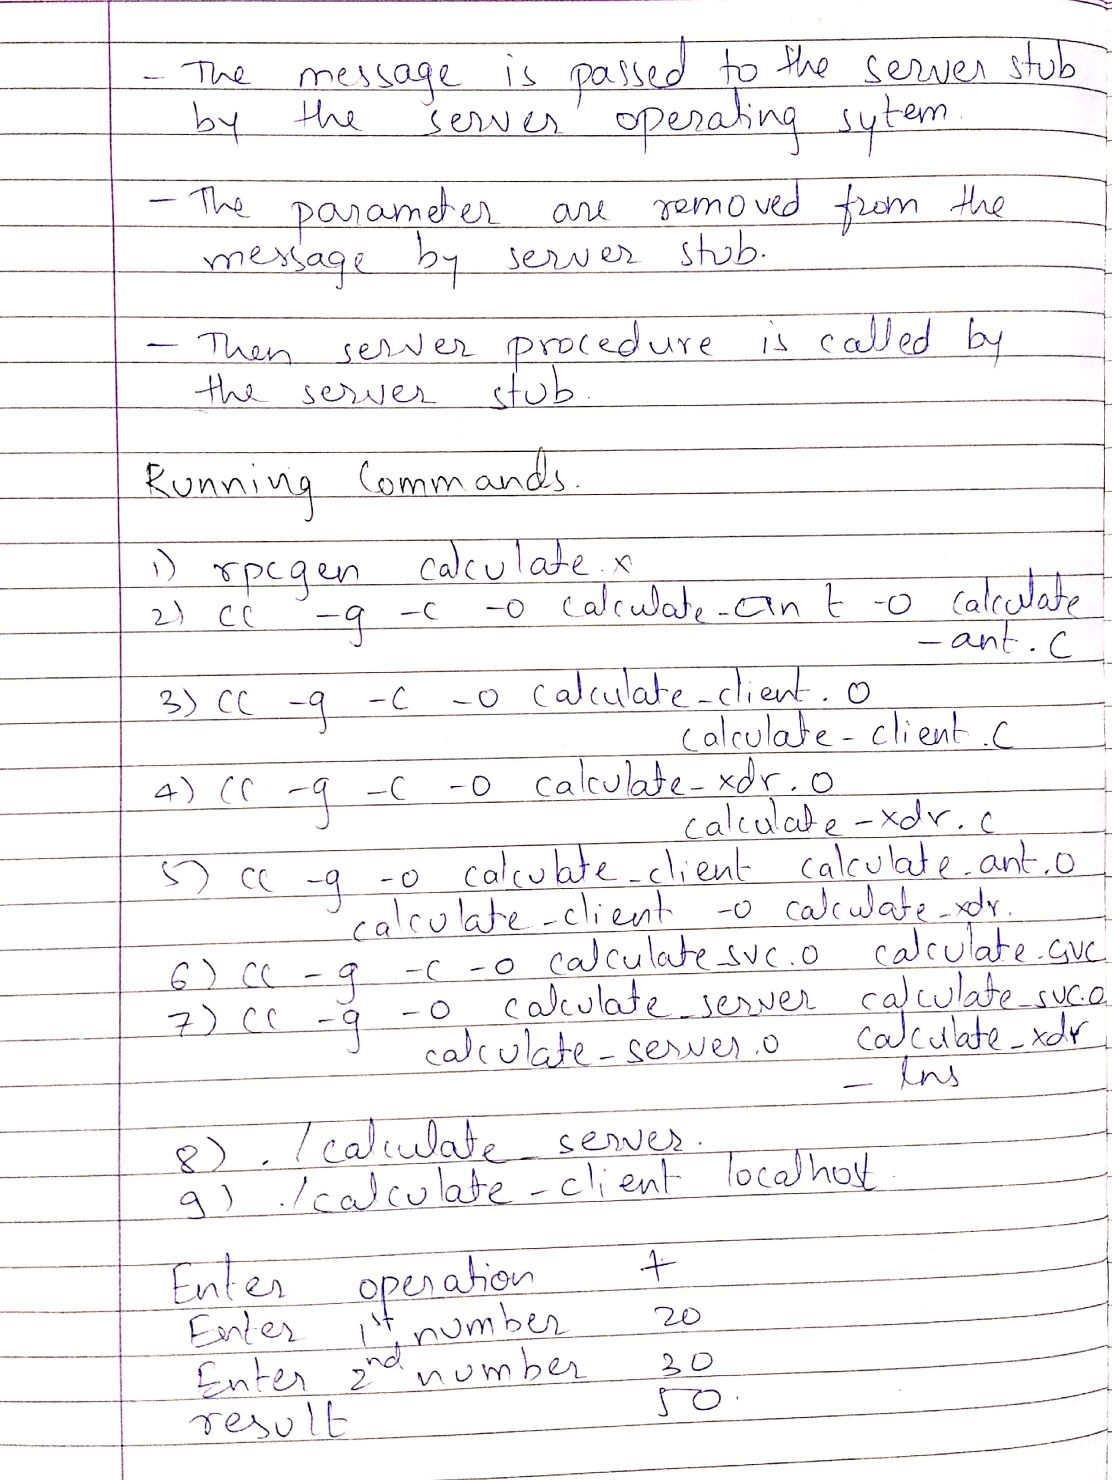 - The message is passed to the server stub
by the server operating sytem.
- The parameter are removed from the
message by server stub.
- Then server procedure is called by
the server stub.
Running Commands.
1) rpcgen calculate.x
2) cc -g -c -o calculate-ant -o calculate
-ant.c
3) cc -g -c -o calculate-client.o
calculate-client.c
4) cc -g -c -o calculate-xdr.o
calculate-xdr.c
5) cc -g -o calculate_client calculate.ant.o
calculate-client -o calculate-xdr.
6) cc -g -c -o calculate svc.o calculate.svc
7) cc -g -o calculate_server calculate_svc.o
calculate-server.o calculate_xdr
- lns
8) ./calculate_server.
9) ./calculate-client localhost
Enter operation +
Enter 1st number 20
Enter 2nd number 30
result 50.